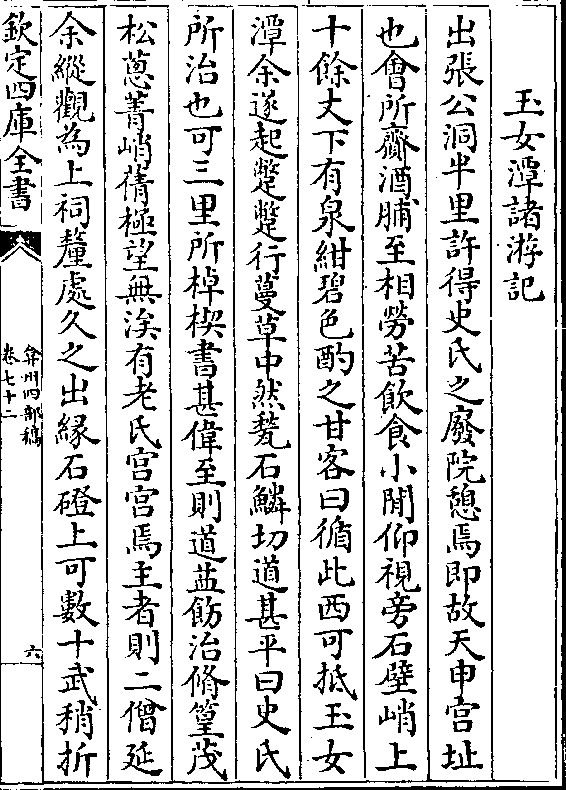 玉女潭諸游記
出張公洞半里許得史氏之廢院憩焉即故天申宫址
也會所齎酒脯至相勞苦飲食小閒仰視旁石壁峭上
十餘丈下有泉紺碧色酌之甘客曰循此西可抵玉女
潭余遂起蹩蹩行蔓草中然甃石鱗切道甚平曰史氏
所治也可三里所棹楔書甚偉至則道益飭治脩篁茂
松蔥菁峭蒨極望無涘有老氏宫宫焉主者則二僧延
余縱觀為上祠釐處久之出緣石磴上可數十武稍折
欽定四庫全書
弇州四部稿
卷七十二
六